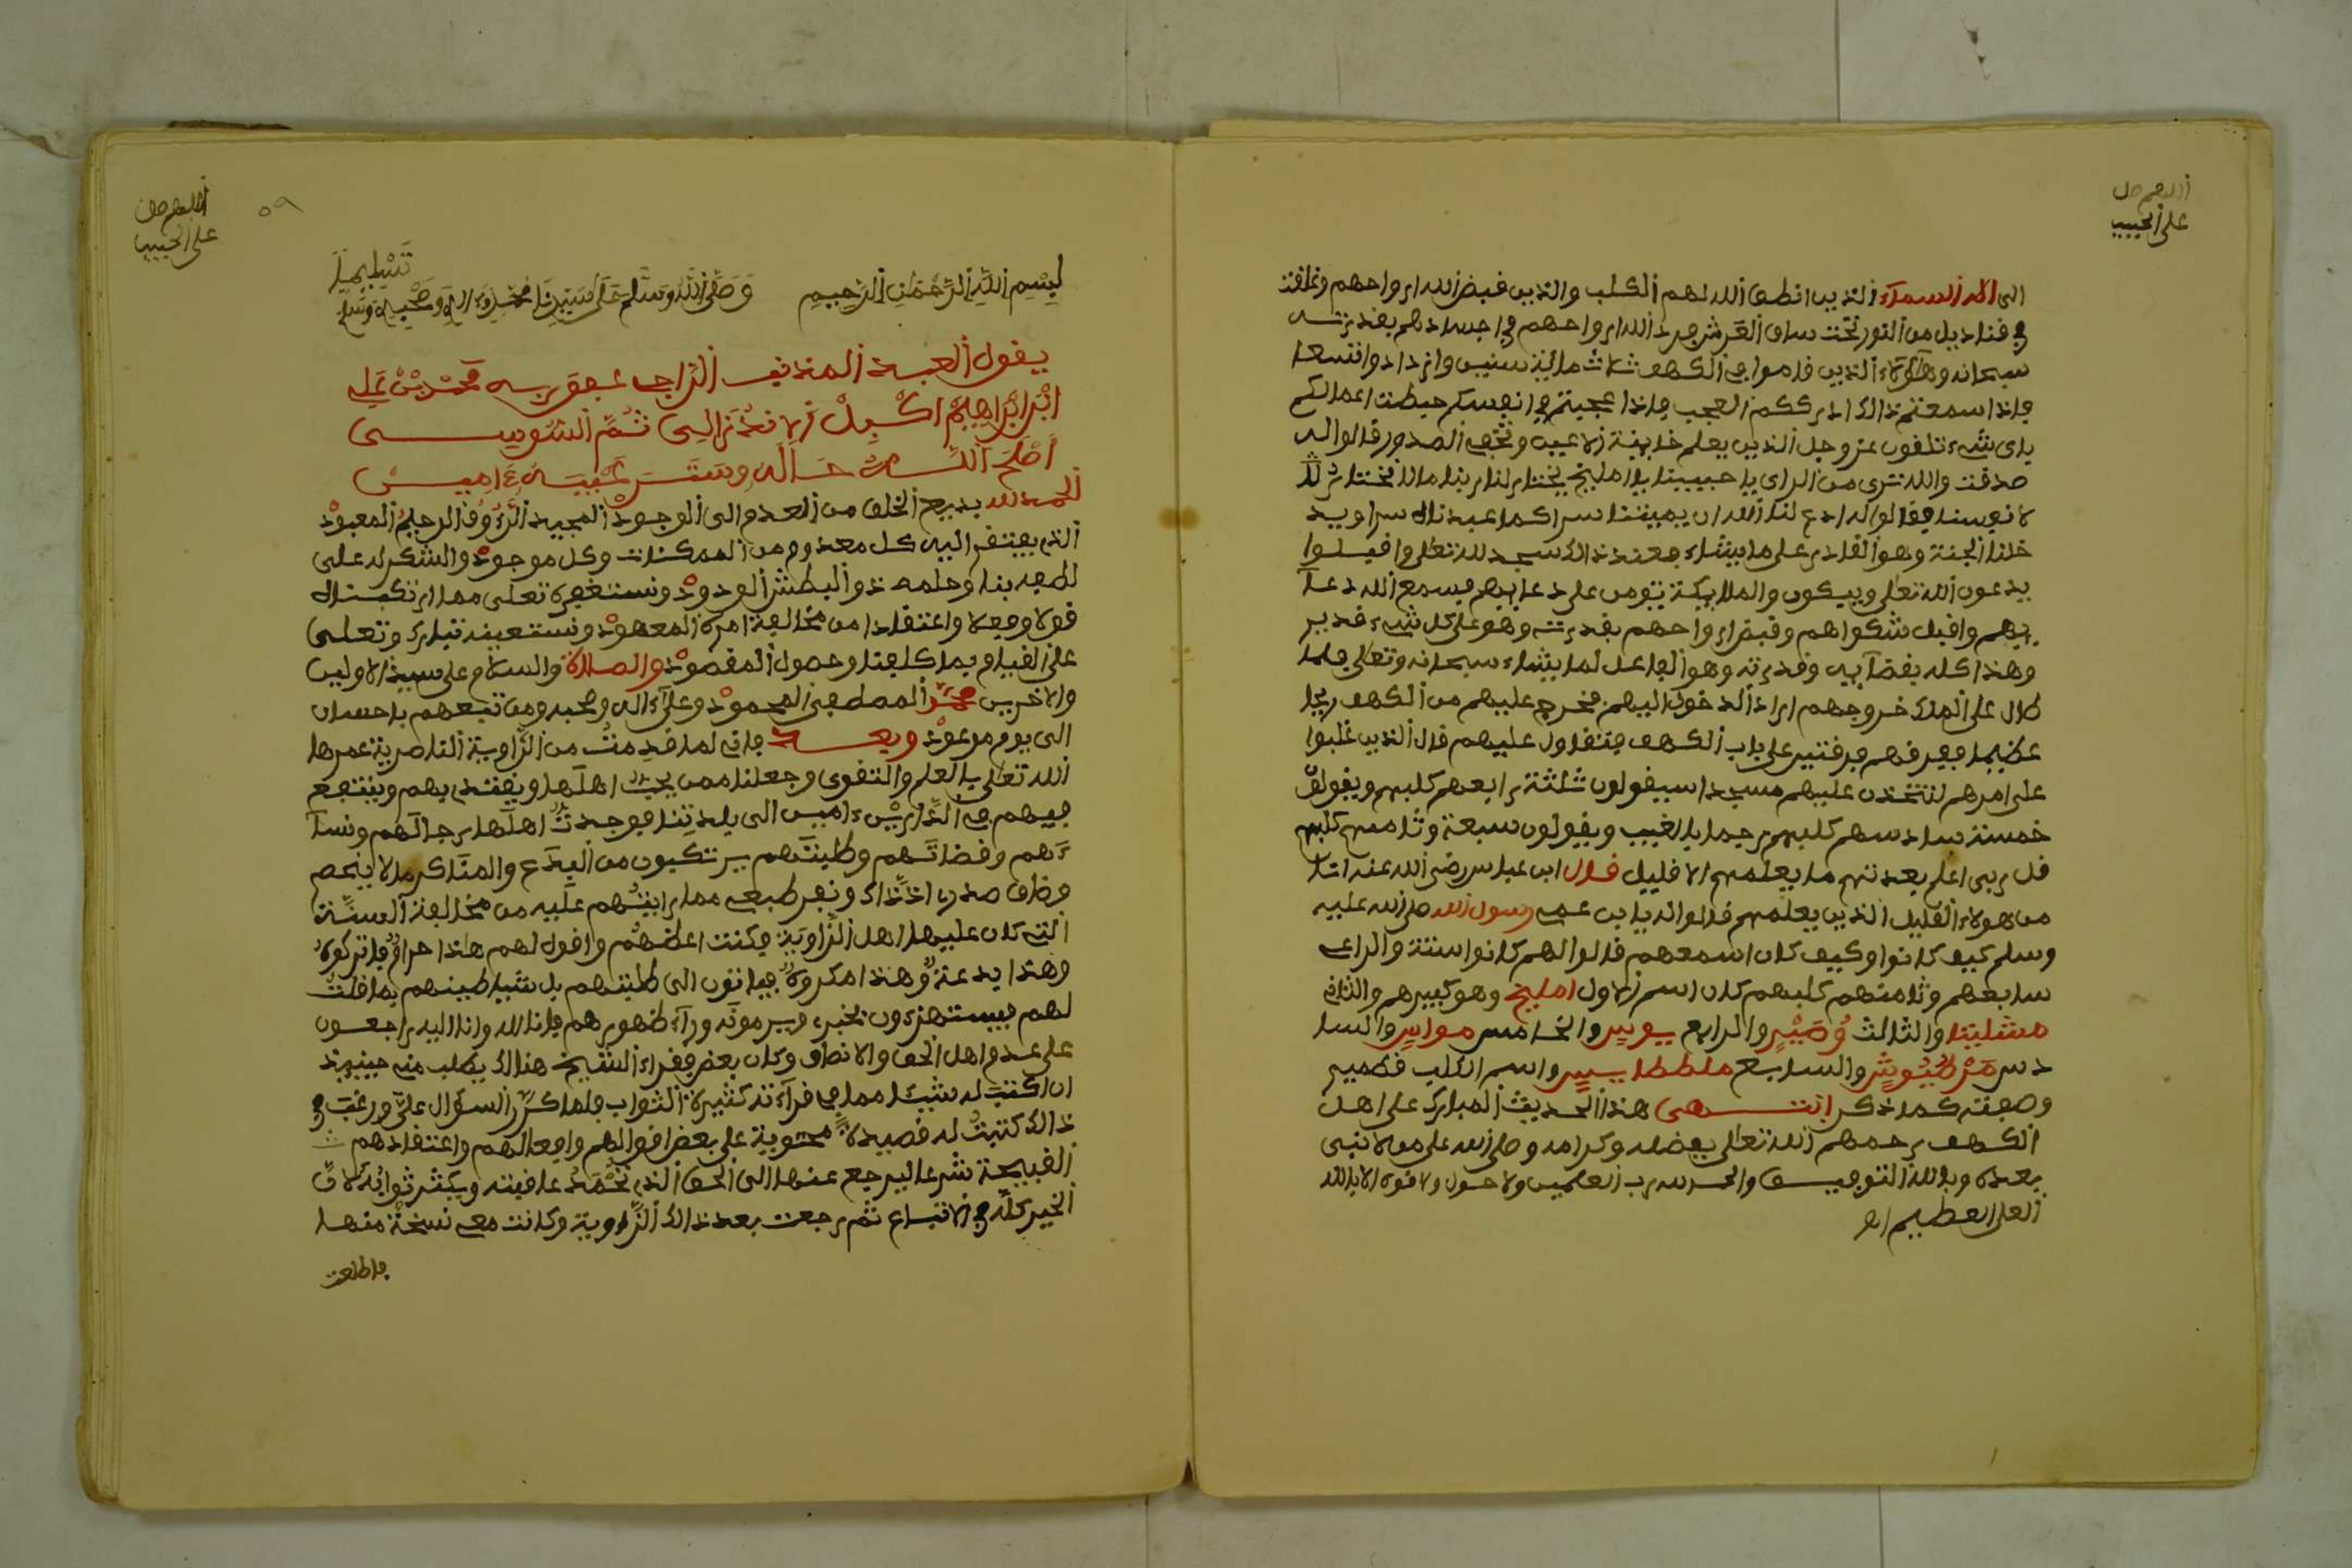 اللهم صل
على الحبيب
الى الاه السماء الذين انطق الله لهم الكلب والذين قبض الله ارواحهم وعلقت
في قناديل من النور تحت ساق العرش ورد الله ارواحهم في اجسادهم بقدرته
سبحانه وهاؤلاء الذين قاموا في الكهف ثلاث مائة سنين وازدادوا تسعا
فاذا سمعتم ذالك ادرككم العجب فاذا عجبتم في انفسكم حبطت اعمالكم
باي شيء تلقون عز وجل الذين يعلم خاينة الاعين وتخفي الصدور قالوا له
صدقت والله نترى من الراي يا حبيبنا يا امليخ تختار لنا ربنا ما لا نختار
لانفسنا فقالوا له ادع لنا الله ان يميتنا سرا كما عبدناه سرا ويد
خلنا الجنة وهو القادر على ما يشاء فعند ذالك سجد لله تعلى واقبلوا
يدعون الله تعلى ويبكون والملايكة تومن على دعايهم فسمع الله دعا
يهم واقبل شكواهم وقبض ارواحهم بقدرته وهو على كل شيء قدير
وهذا كله بقضايه وقدرته وهو الفاعل لما يشاء سبحانه وتعالى فلما
طال على الملك خروجهم اراد الدخول اليهم فخرج عليهم من الكهف ريحا
عظيما ففرقهم فرقتين على باب الكهف فتقاول عليهم قال الذين غلبوا
على امرهم لنتخذن عليهم مسجدا سيقولون ثلثة رابعهم كلبهم ويقولون
خمسة سادسهم كلبهم رجما بالغيب ويقولون سبعة وثامنهم كلبهم
قل ربي اعلم بعدتهم ما يعلمهم الا قليل قال ابن عباس رضي الله عنه انا
من هولاء القليل الذين يعلمهم قالوا له يا بن عم رسول الله صلى الله عليه
وسلم كيف كانوا وكيف كان اسمعهم قالوا لهم كانوا ستة والراعي
سابعهم وثامنهم كلبهم كان اسم الاول امليخ وهو كبيرهم والثاني
مشلينا والثالث والرابع والخامس والسا
دس والسابع واسم الكلب قطمير
وصفته كما ذكر انتهى هذا الحديث المبارك على اهل
الكهف رحمهم الله تعالى بفضله وكرامه وصلى الله على من لا نبي
بعده وبالله التوفيق والحمد لله رب العلمين ولا حول ولا قوة الا بالله
العلي العظيم اه
اللهم صل
على الحبيب
٥٩
بسم الله الرحمن الرحيم وصلى الله وسلم على سيدنا محمد واله وصحبه وسلم
تسليما
يقول العبد المذنب الراجي عفو ربه محمد بن علي
ابن ابراهيم ثم السوسي
اصلح الله حاله وستر عيبه ءامين
الحمد لله بديع الخلق من العدم الى الوجود المجيد الرءوف الرحيم المعبود
الذي يفتقر اليه كل معدوم من الممكنات وكل موجود والشكر له على
لطفه بنا وحلمه ذو البطش الودود ونستغفره تعلى مما ارتكبناه
قولا وفعلا واعتقادا من مخالفة امره المعهود ونستعينه تبارك وتعلى
على القيام بما كلفنا وحصول المقصود والصلاة والسلام على سيد الاولين
والاخرين محمد المصطفى المحمود وعلى ءاله وصحبه ومن تبعهم باحسان
الى يوم موعود وبعد فانه لما قدمت من الزاوية الناصرية عمرها
الله تعلى بالعلم والتقوى وجعلنا ممن يحب اهلها ويقتدي بهم وينتفع
بهم في الدارين ءامين الى بلدتنا فوجدت اهلها رجالهم ونسا
ءهم وقضاتهم وطلبتهم يرتكبون من البدع والمناكر ما لا ينحصر
وضاق صدري اذذاك ونفر طبعي مما رايتهم عليه من مخالفة السنة
التي كان عليها اهل الزاوية فكنت اعظهم واقول لهم هاذا حرام فاتركوه
وهذا بدعة وهذا مكروه فياتون الى طلبتهم بل شياطينهم بما قلت
لهم فيستهزءون بخبري ويرمونه وراء ظهورهم فانا لله وانا اليه راجعون
على عدم اهل الحق والانصاف وكان بعض فقراء الشيخ هناك يطلب مني حينئذ
ان اكتب له شيئا مما في قراءته كثيرة الثواب فلما كرر السؤال علي ورغب في
ذالك كتبت له قصيدة محتوية على بعض اقوالهم وافعالهم واعتقادهم
القبيحة شرعا ليرجع عنها الى الحق الذي تحمد عاقبته ويكثر ثوابه لان
الخير كله في الاتباع ثم رجعت بعد ذالك الزاوية وكانت معي نسخة منها
فاطلعت